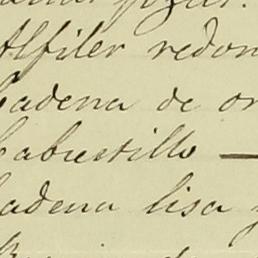 Alfiler redon
Cadena de or
Cabrestillo —
Cadena lisa y